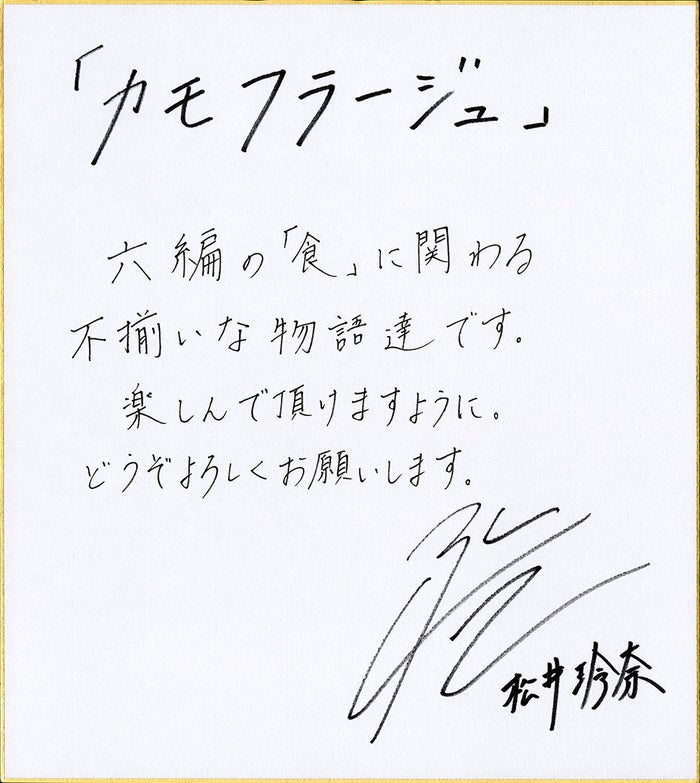 「カモフラージュ」
六編の「食」に関わる
不揃いな物語達です。
楽しんで頂けますように。
どうぞよろしくお願いします。
松井玲奈